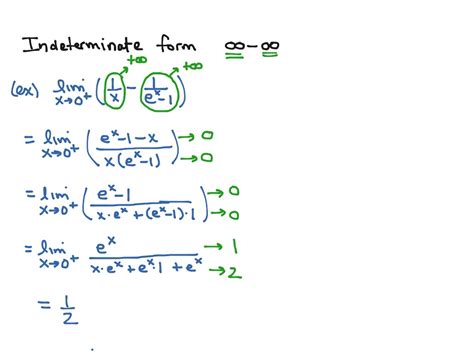 Indeterminate form ∞-∞
(ex) lim x→0⁺ (1/x - 1/(eˣ-1)) →+∞ →+∞
= lim x→0⁺ ((eˣ-1-x)/(x(eˣ-1))) →0 →0
= lim x→0⁺ ((eˣ-1)/(x·eˣ+(eˣ-1)·1)) →0 →0
= lim x→0⁺ eˣ/(x·eˣ+eˣ·1+eˣ) →1 →2
= 1/2